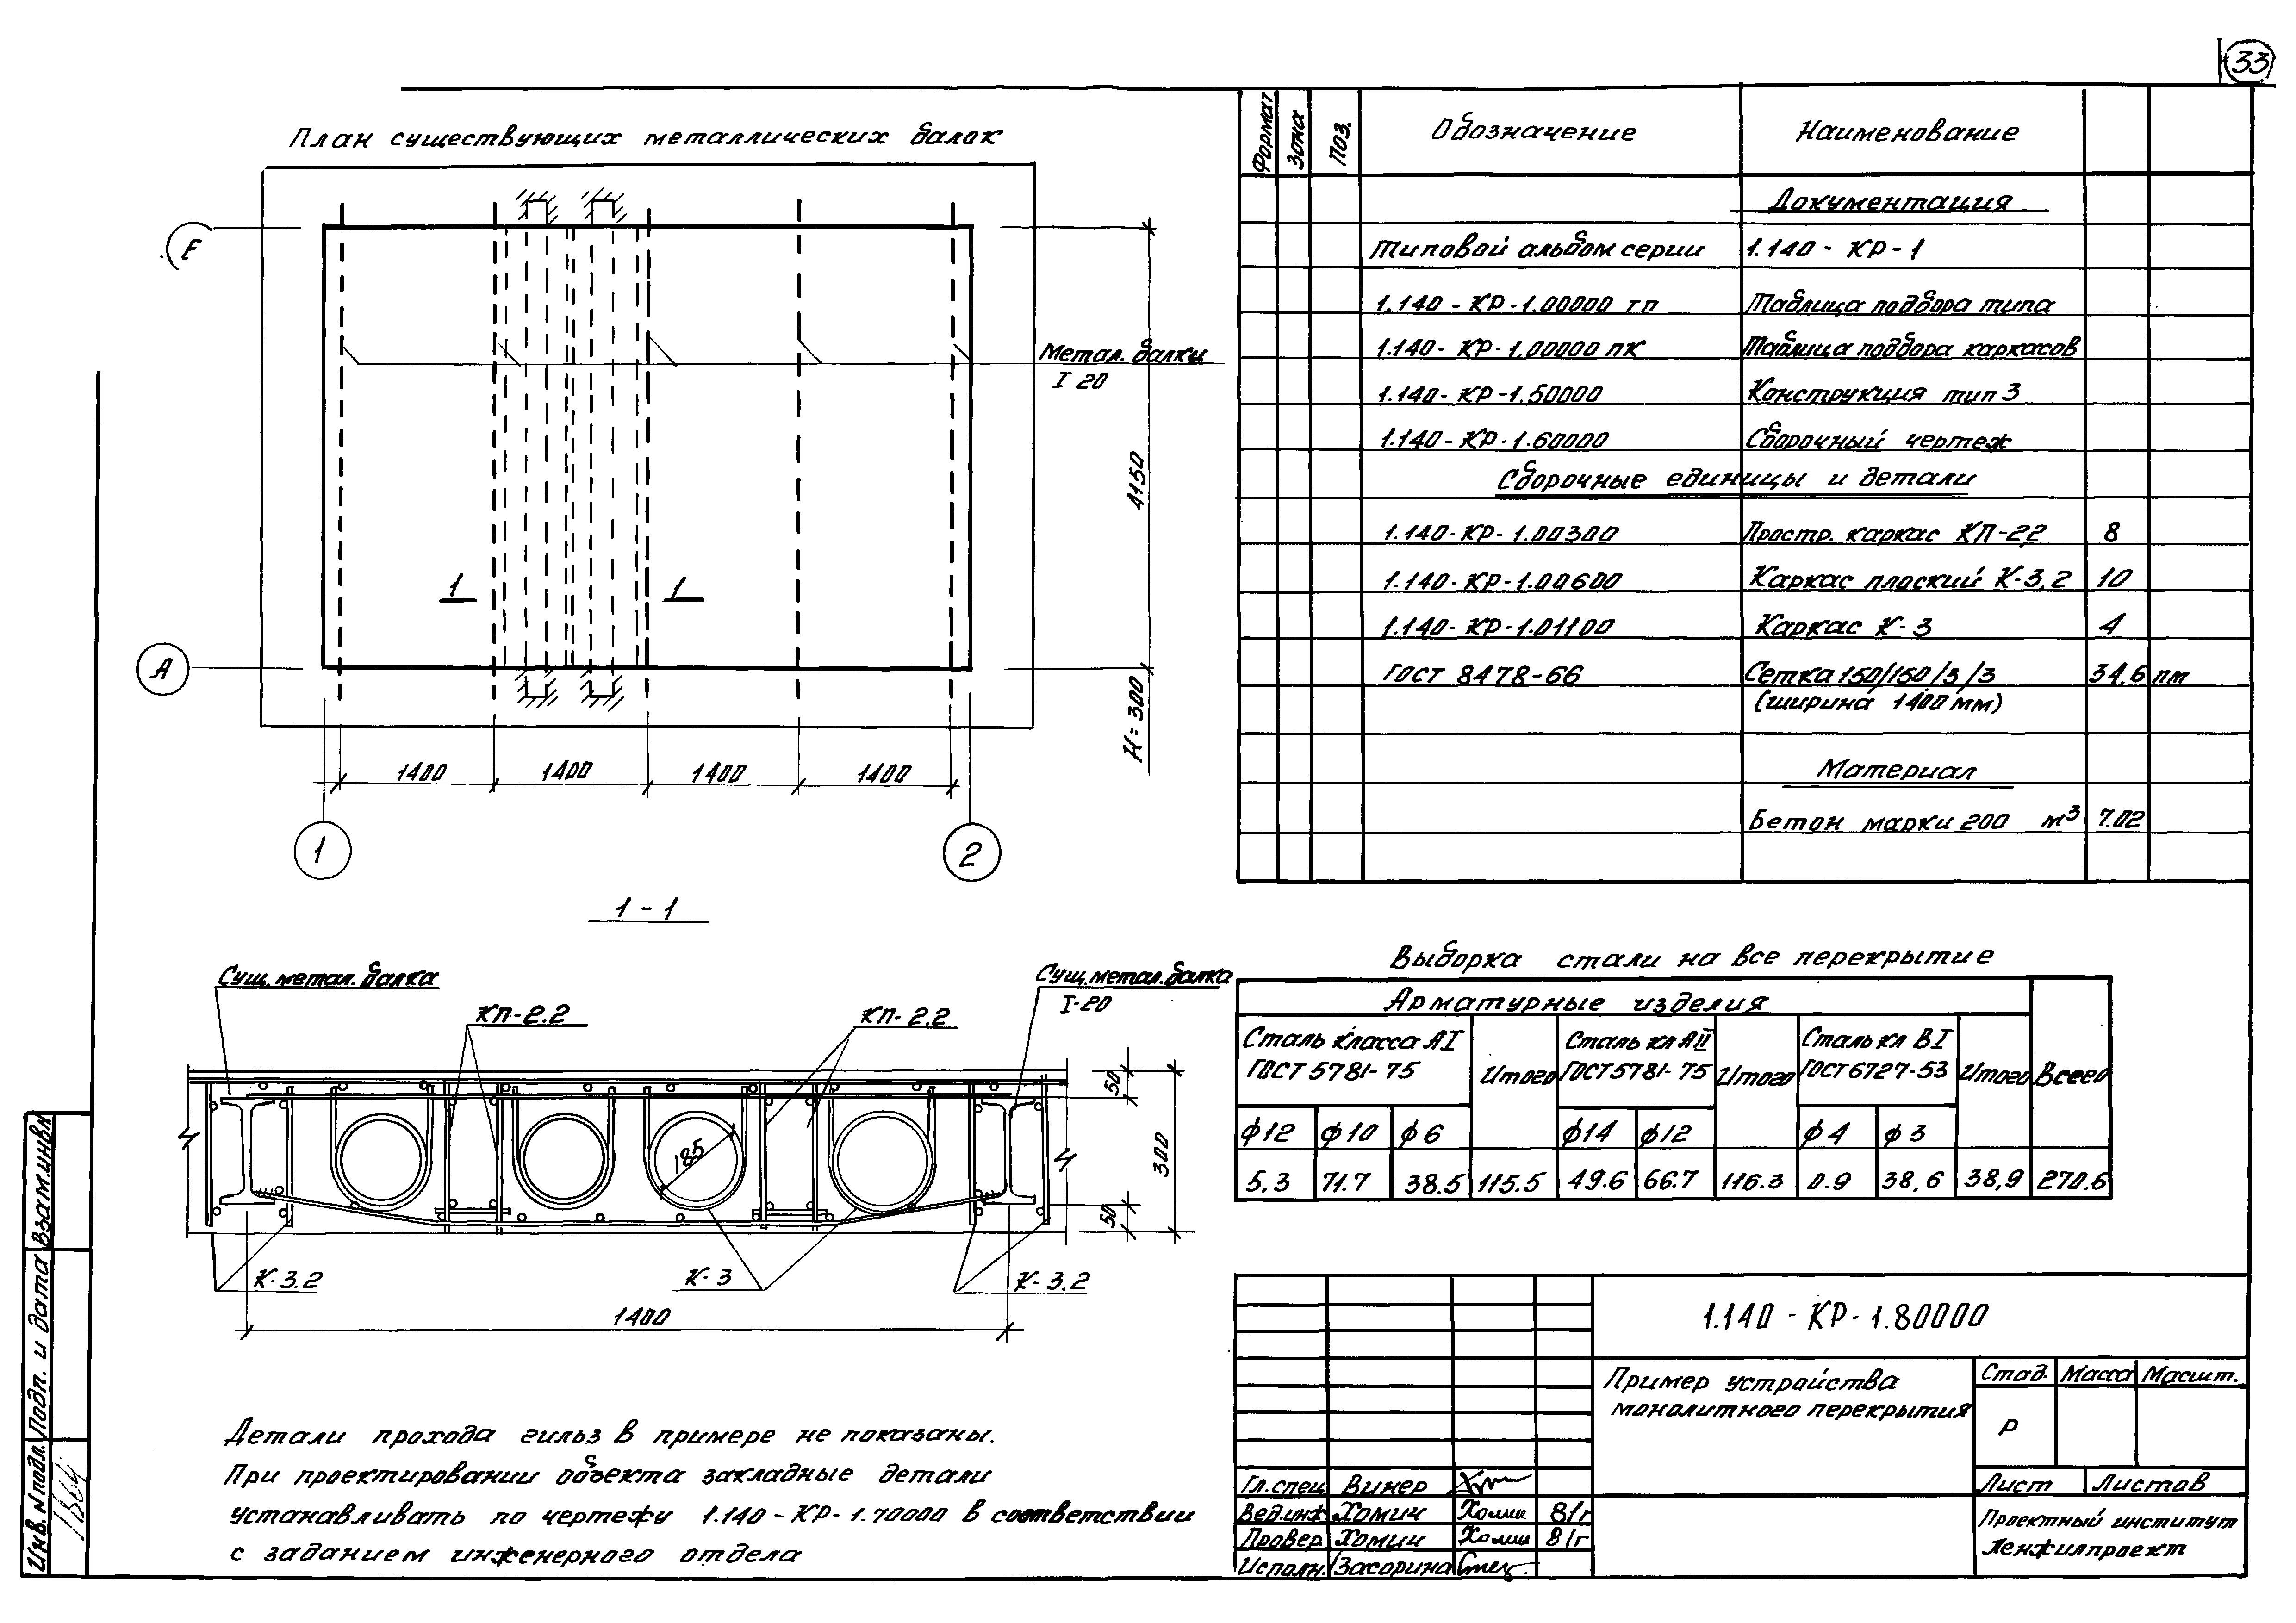 33
План существующих металлических балок
Е
А
Метал. балки
I 20
4150
Н=300
1
1
1400
1400
1400
1400
1
2
1-1
Сущ. метал. балка
КП-2.2
КП-2.2
Сущ. метал. балка
I-20
185
50
300
50
К-3.2
К-3
К-3.2
1400
Детали прохода гильз в примере не показаны.
При проектировании объекта закладные детали
устанавливать по чертежу 1.140-КР-1.70000 в соответствии
с заданием инженерного отдела
Формат
Зона
Поз.
Обозначение
Наименование
Документация
Типовой альбом серии 1.140-КР-1
1.140-КР-1.00000 тп Таблица подбора типа
1.140-КР-1.00000 пк Таблица подбора каркасов
1.140-КР-1.50000 Конструкция тип 3
1.140-КР-1.60000 Сборочный чертеж
Сборочные единицы и детали
1.140-КР-1.00300 Простр. каркас КП-2,2 8
1.140-КР-1.00600 Каркас плоский К-3,2 10
1.140-КР-1.01100 Каркас К-3 4
ГОСТ 8478-66 Сетка 150/150/3/3 34.6 пм
(ширина 1400 мм)
Материал
Бетон марки 200 м³ 7.02
Выборка стали на все перекрытие
Арматурные изделия
Сталь класса АI
ГОСТ 5781-75
Итого
Сталь кл АII
ГОСТ 5781-75
Итого
Сталь кл ВI
ГОСТ 6727-53
Итого
Всего
ф12 ф10 ф6 ф14 ф12 ф4 ф3
5,3 71.7 38.5 115.5 49.6 66.7 116.3 0.9 38,6 38,9 270.6
1.140-КР-1.80000
Пример устройства
монолитного перекрытия
Стад. Масса Масшт.
Р
Лист Листов
Проектный институт
Ленжилпроект
Гл. спец Винер
Вед.инж Хомич 81г
Провер Хомич 81г
Исполн. Засорина
Взам.инв.N
Подп. и дата
Инв. N подл.
1864